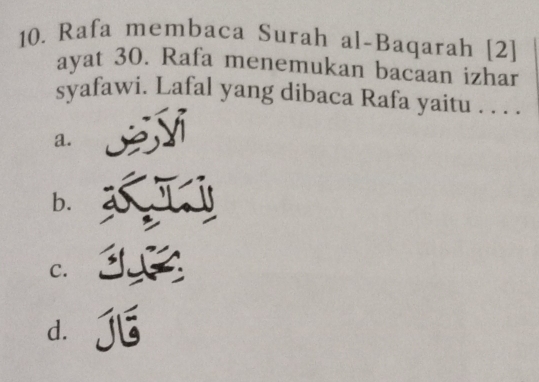 10. Rafa membaca Surah al-Baqarah [2]
ayat 30. Rafa menemukan bacaan izhar
syafawi. Lafal yang dibaca Rafa yaitu . . . .
a. الْأَرْضِ
b. لِلْمَلٰٓئِكَةِ
c. بِحَمْدِكَ
d. قَالَ